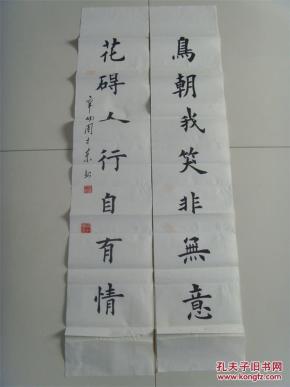 鳥朝我笑非無意
花碍人行自有情
孔夫子旧书网